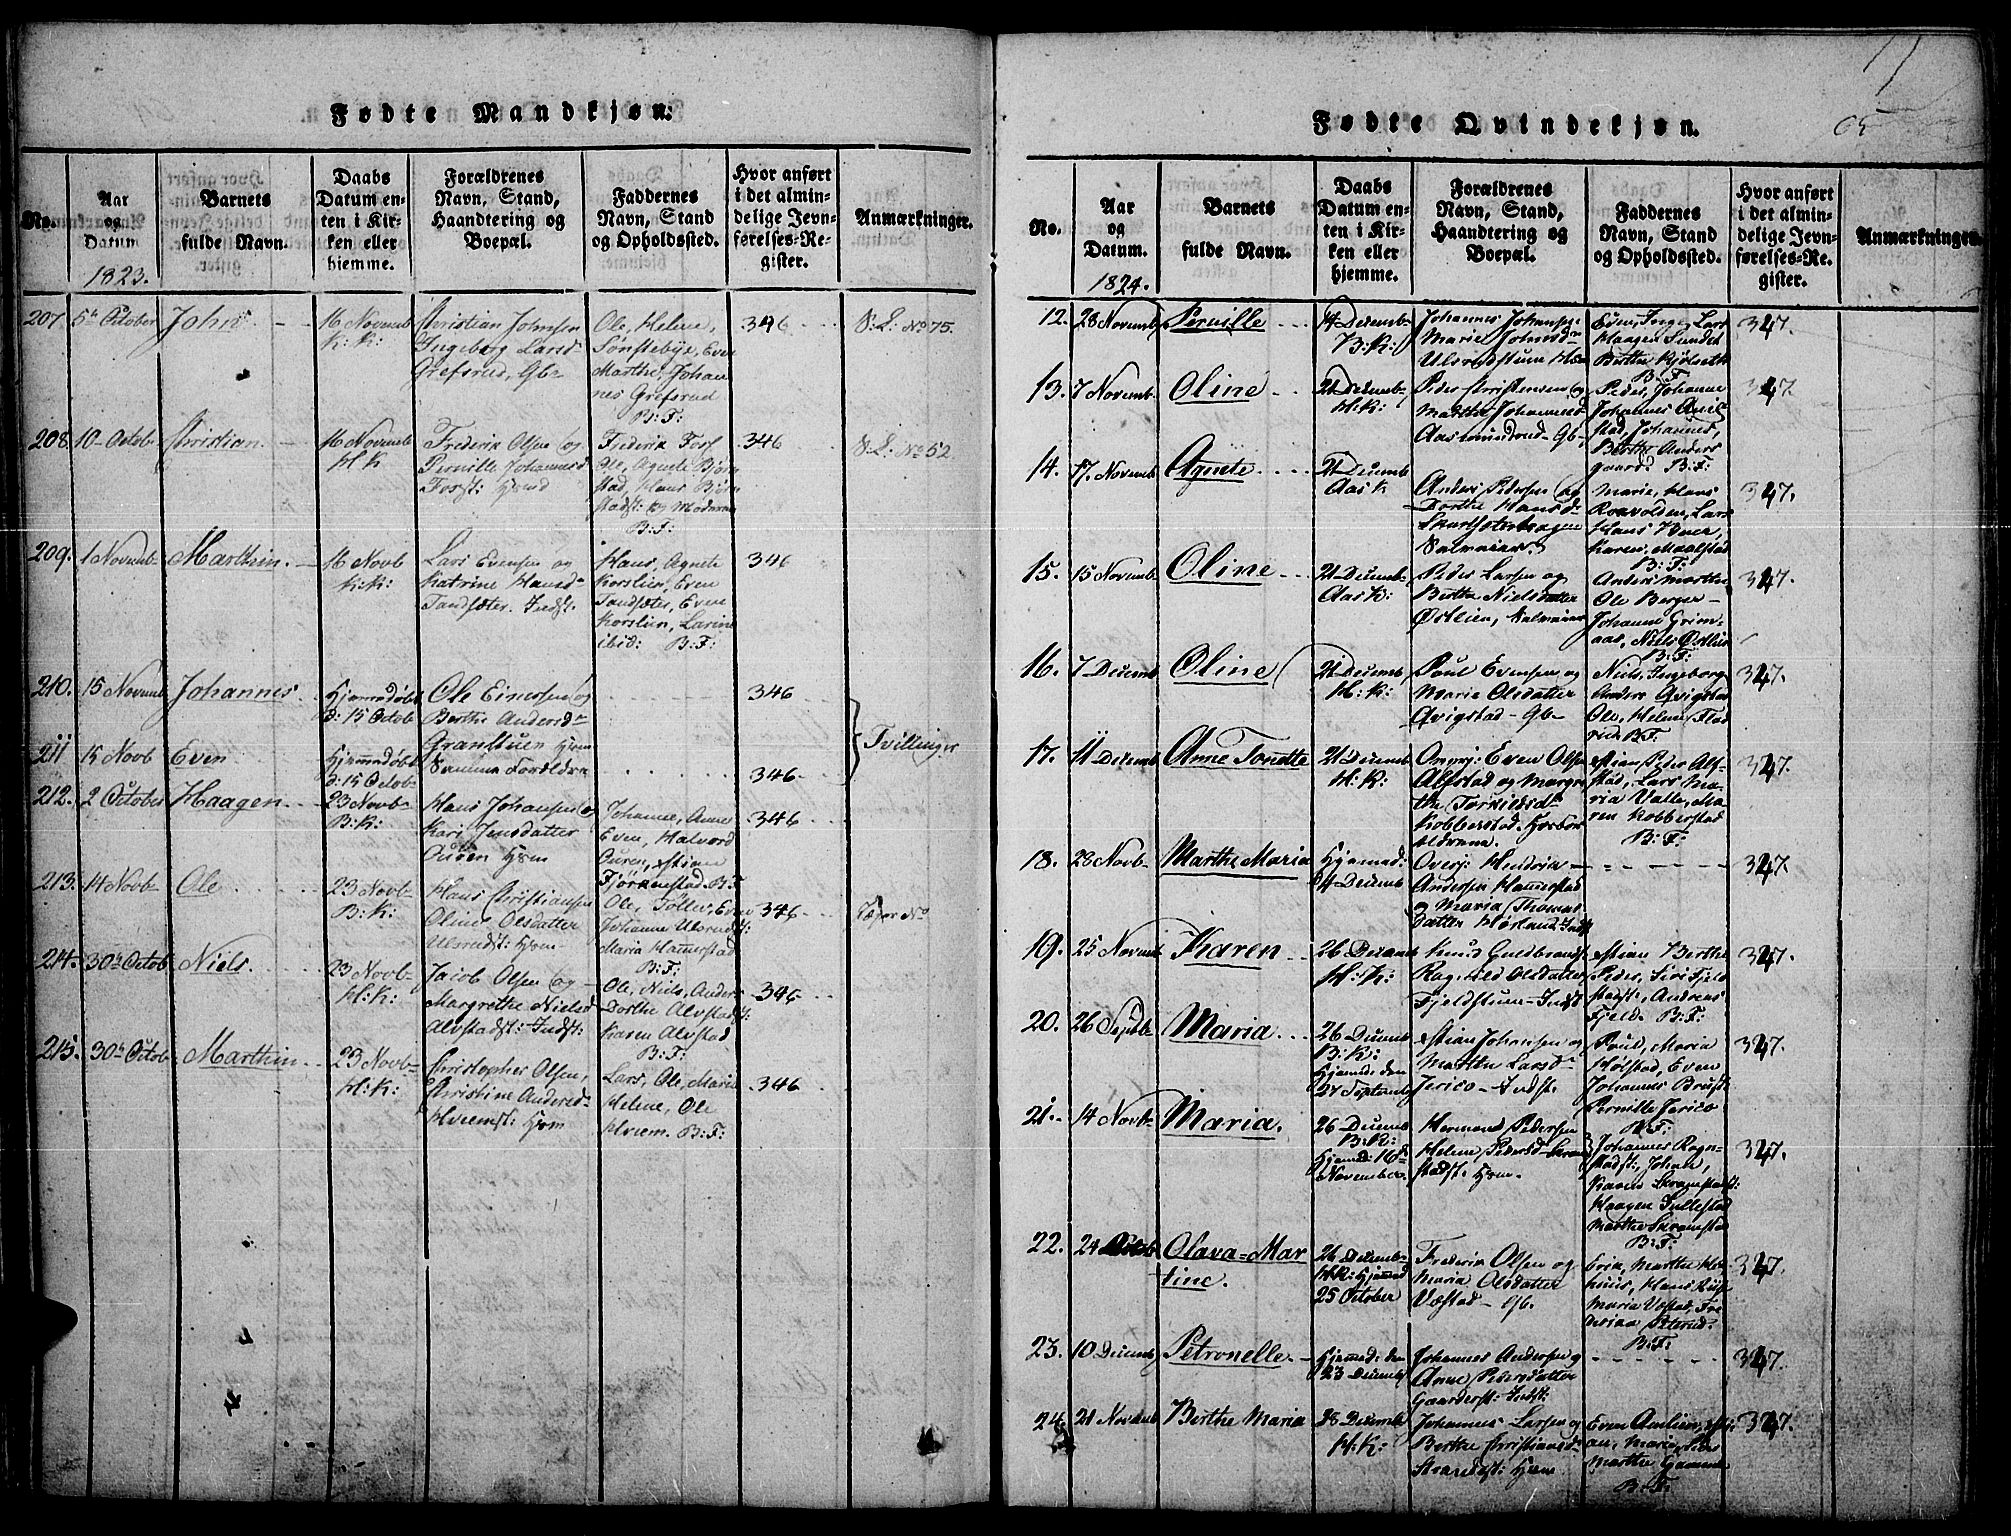 Fødte Mandkjøn.
No.
Aar
og
Datum
1823.
Barnets
fulde Navn.
Daabs
Datum en-
ten i Kir-
ken eller
hjemme.
Forældrenes
Navn, Stand,
Haandtering og
Boepæl.
Faddernes
Navn, Stand
og Opholdssted.
Hvor anført
i det almin-
delige Jevn-
førelses-Re-
gister.
Anmærkninger.
207 5te October John
16 Novemb
K: K:
Christian Johnsen
Ingeborg Larsd
Grefsrud, Gb
Ole, Helene,
Sønstebye, Even
Marthe, Johan
nes Grefsrud
B: F:
346
S: L: No 75.
208. 10 Octob Christian
16 Novemb
H: K
Frederik Olsen og
Pernille Johannesd
Forst: Hjemd
Frederik Fors
Ole, Agnete Bjørn
stad, Hans Bjørn
stadst: og Moderen
B: F:
346
S: L: No 52.
209. 1 Novemb Marthin.
16 Novb
K: K:
Lars Evensen og
Katrine Hansd
Tandsæter. Indst:
Hans, Agnete
Korslien, Even
Tandsæter, Even
Korslien, Larine
ibid: B: F:
346
210. 15 Novemb Johannes
Hjemmdøbt
d: 15 Octob
Ole Einersen og
Berthe Andersd
Grantuen Hjem
346
Tvillinger
211 15 Novb Even
Hjemmdøbt
d: 15 Octob
Samme Forældre
346
212. 2 October Haagen
23 Novb
B: K:
Hans Johansen og
Kari Jensdatter
Ouren Hjem
Johanne, Anne
Even, Halvord
Ouren, Xstian
Fjørkenstad. B: F
346
213. 14 Novb Ole
23 Novb
B: K:
Hans Christiansen
Oline Olsdatter
Ulsrudst: Hjem
Ole, Tøller, Even
Johanne Ulsrudst:
Maria Hammerstad
B: F:
346
214. 30te Octob Niels.
23 Novb
H: K:
Jacob Olsen og
Margrethe Nielsd
Alvstadst: Indst:
Ole, Niels, Anders
Dorthe Alvstadst:
Karen Alvstad
B: F:
346
215. 30te Octob Marthin
23 Novb
H: K:
Christopher Olsen,
Christine Andersd
Hveemst: Hjem
Lars, Ole, Marie
Helene, Ole
Hveem. B: F:
346
Fødte Qvindekjøn.
65
No.
Aar
og
Datum.
1824.
Barnets
fulde Navn.
Daabs
Datum en-
ten i Kir-
ken eller
hjemme.
Forældrenes
Navn, Stand,
Haandtering og
Boepæl.
Faddernes
Navn, Stand
og Opholdssted.
Hvor anført
i det almin-
delige Jevn-
førelses-Re-
gister.
Anmærkninger.
12. 23 Novemb Pernille
14 Decemb
B: K:
Johannes Johanse
Marie Johnsd
Ulsrudstuen
Even, Inge, Lars
Haagen Sundet
Berthe Kjølseth
B: F
347.
13. 7 Novemb Oline
21 Decemb
H: K:
Peder Christensen og
Marthe Johannesd
Aasmundrud Gb
Peder, Johanne
Johannes Qvil
stad, Johannes,
Berthe Anders
gaard B: F:
347
14. 17. Novemb Agnete
21 Decemb
Aas K
Anders Pedersen og
Dorthe Hansd
Marie, Hans
Roavolden, Lars
Karen, Maalstad
B: F:
347.
15. 15 Novemb Oline
21 Decemb
Aas K:
Peder Larsen og
Berthe Nielsdatter
Østlien,
Anders Marthe
Ole Berger
Johanne Grim
aas, Niels Østlien
B: F:
347.
16. 7 Decemb Oline
21 Decemb
H: K:
Poul Evensen og
Marie Olsdatter
Qvigstad Gb
Niels, Ingeborg
Anders Qvigstad
Ole, Helene, Flad
rud B: F:
347.
17. 11 Decemb Anne Tonette
21 Decemb
H: K:
Omvj: Even Olsen
Alfstad og Margre
the Torkildsd
Kobberstad.
Xstian Peder Alf
stad, Lars Ma
ria Valle, Ma
ren Kobberstad
B: F:
347.
18. 28 Novb Marthe Maria
Hjemmd:
14 Decemb
Omvj: Hendrik
Andersen Hammerstad
og Maria Thomas
datter
347
19. 25 Novemb Karen
26 Decemb
H: K:
Knud Guldbrands
Ragnild Olsdatter
Fjeldstuen Indst
Xstian Berthe
Peder, Siri Fjeld
stadst:, Andreas
Fjeld B: F:
347.
20. 26 Septb Maria
26 Decemb
B: K:
Hjemmd: den
27 Septemb
Xstian Johansen og
Marthe Larsd
Jerico Indst:
Poul, Maria
Holstad, Even
Johannes Brust
Pernille Jerico
B: F:
347.
21. 14 Novb Maria.
26 Decemb
B: K:
Hjemmd: 16de
November.
Hermand Pedersen
Helene Pedersd Skram
stadst. Hjem.
Johannes Rogn
stadst:, Johan,
Karen Skramstadst:
Haagen Tullestad
Marthe Skramstad
B: F:
347.
22. 24 Octob Olava=Mar
tine.
26 Decemb
H.K: Hjemmd
25 October
Frederik Olsen og
Maria Olsdatter
Væstad Gb.
Erik, Marthe
Maria Væstad, Fre
derik
B: F:
347.
23. 10 Decemb Petronelle.
Hjemmd: den
23 Decemb
Johannes Andersen og
Anne Pedersdatter
Gaarderst: Indst:
347.
24 21 Novemb Berthe Maria
28 Decemb
H: K:
Johannes Larsen og
Berthe Christiansd
Even Amlien, Xsti
an, Maria, Lars
Marthe Gamme
B: F:
347.